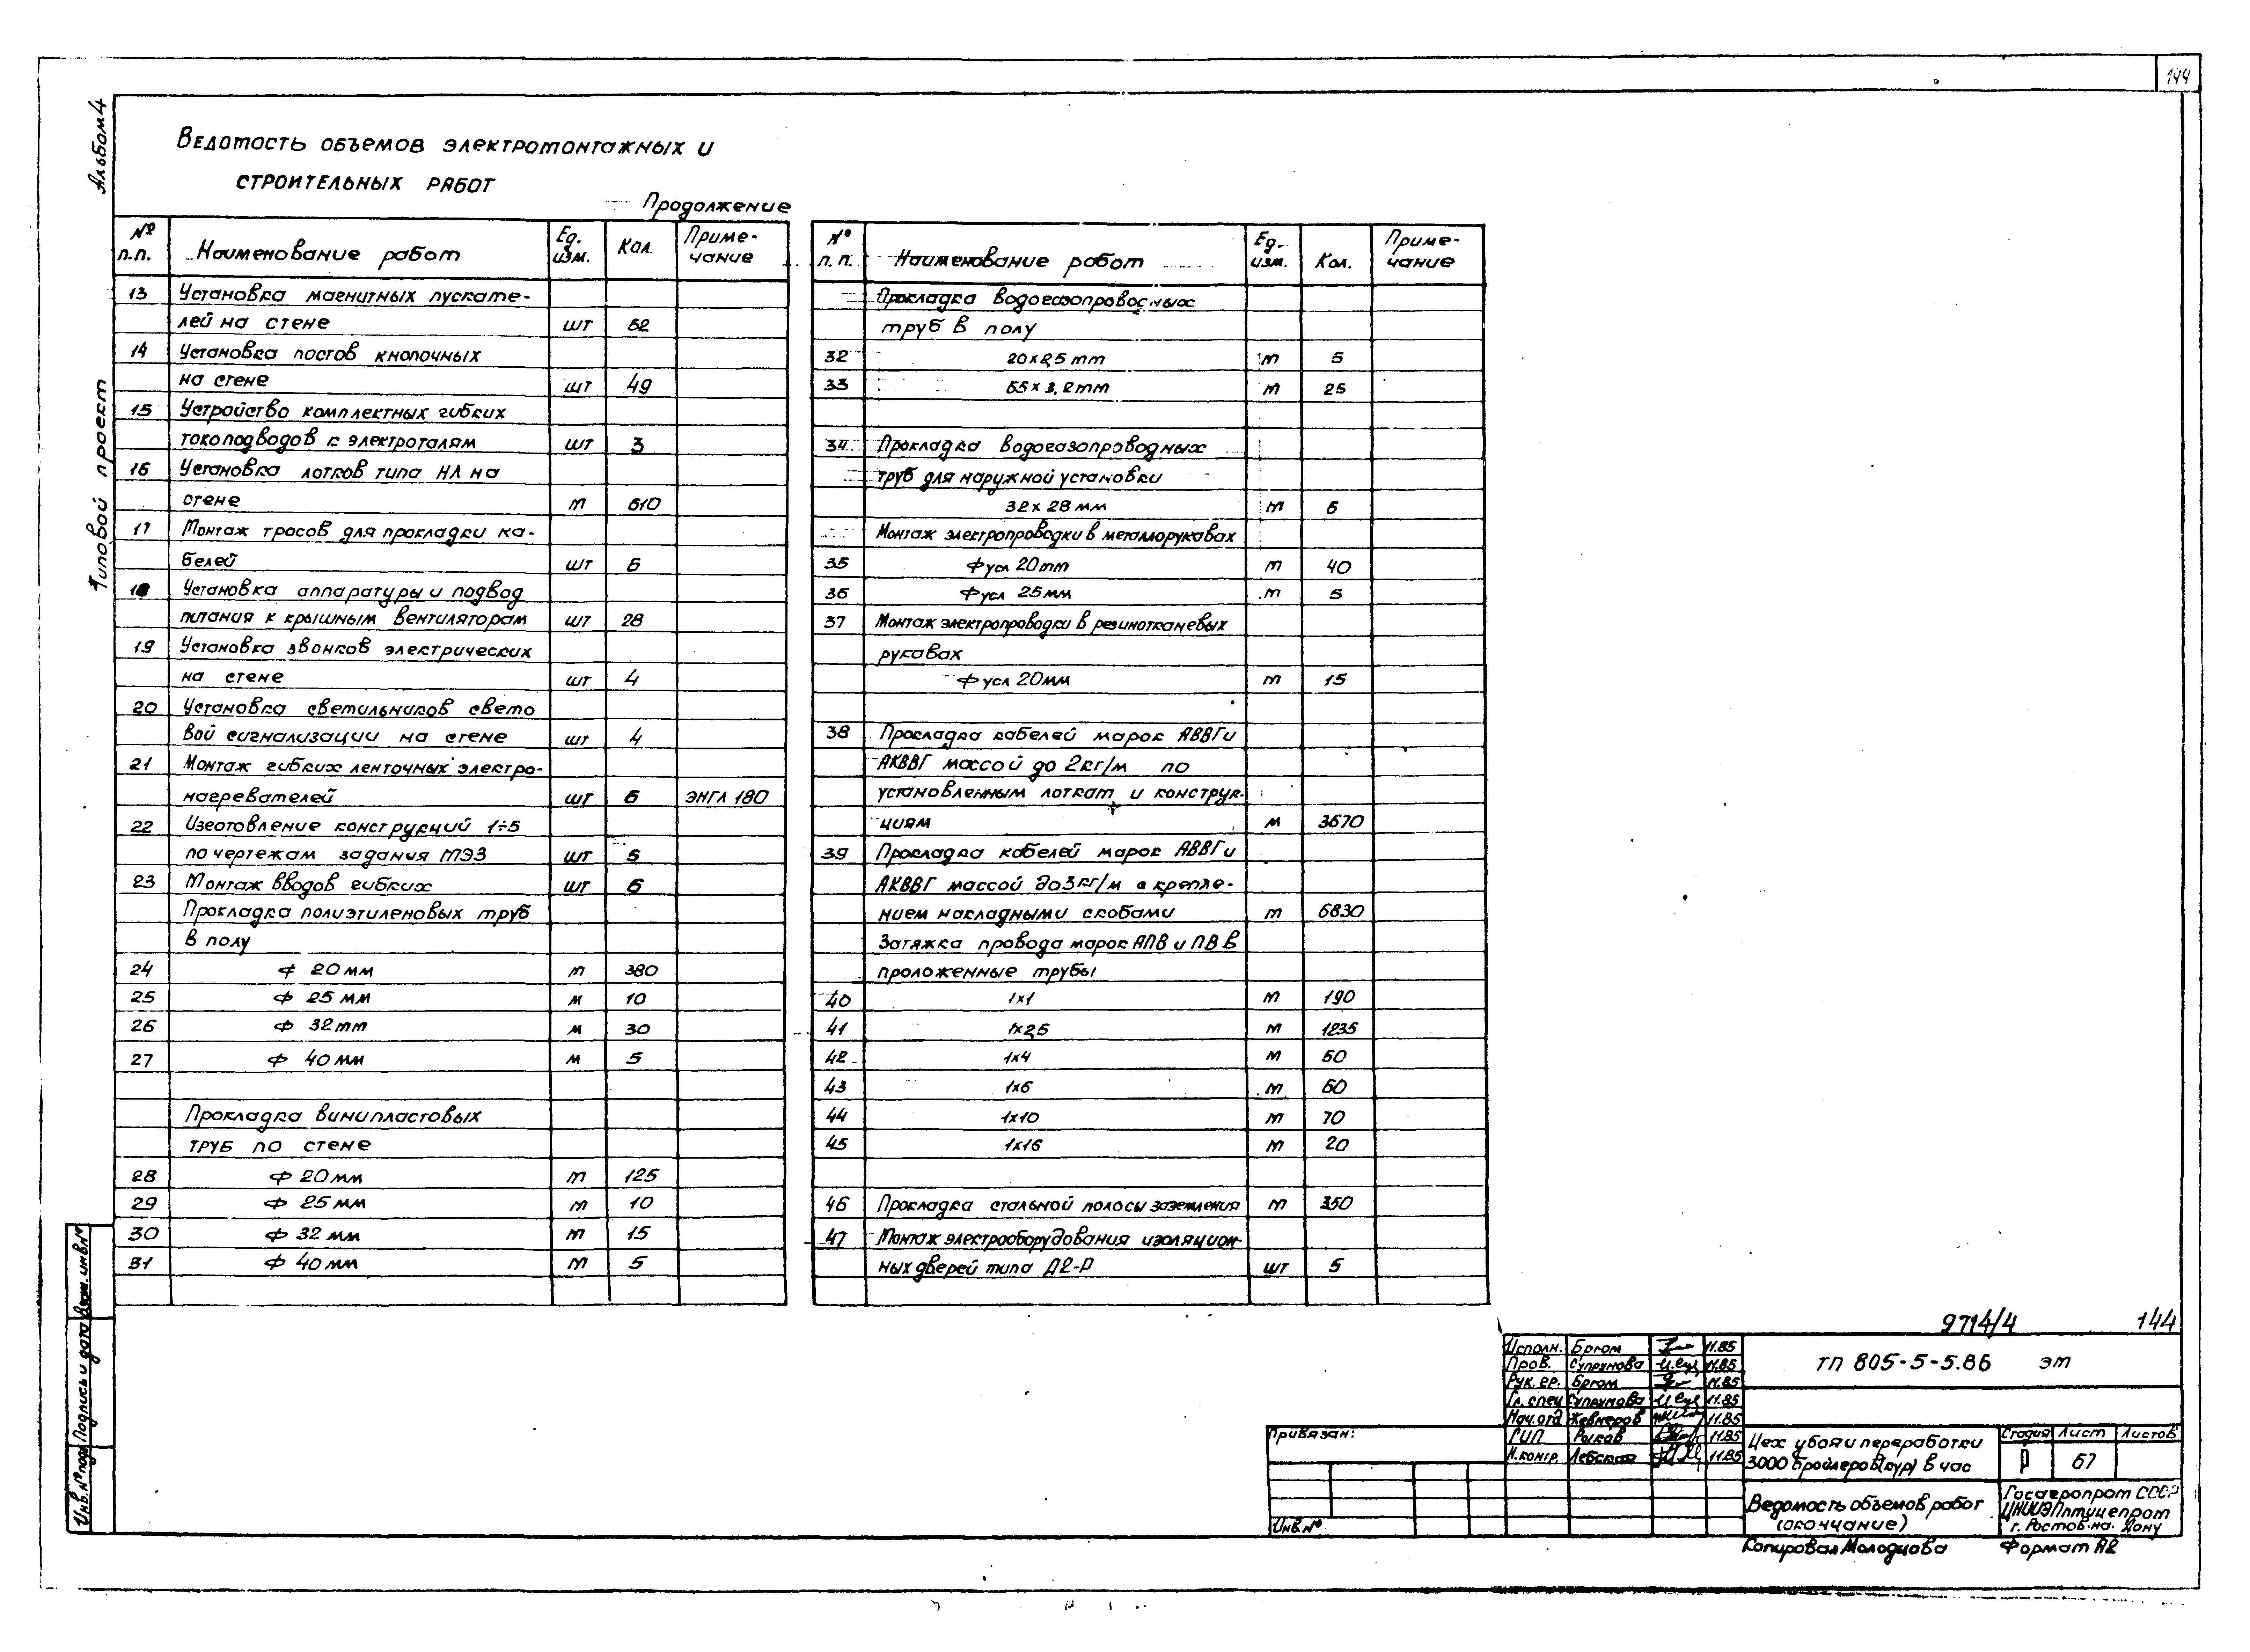 144
Альбом 4
Типовой проект
Ведомость объемов электромонтажных и
строительных работ
Продолжение
№ п.п. Наименование работ Ед. изм. Кол. Примечание
13 Установка магнитных пускате-
лей на стене шт 52
14 Установка постов кнопочных
на стене шт 49
15 Устройство комплектных гибких
токоподводов к электроталям шт 3
16 Установка лотков типа НЛ на
стене м 610
17 Монтаж тросов для прокладки ка-
белей шт 6
18 Установка аппаратуры и подвод
питания к крышным вентиляторам шт 28
19 Установка звонков электрических
на стене шт 4
20 Установка светильников свето
вой сигнализации на стене шт 4
21 Монтаж гибких ленточных электро-
нагревателей шт 6 ЭНГЛ 180
22 Изготовление конструкций 1÷5
по чертежам задания МЭЗ шт 5
23 Монтаж вводов гибких шт 6
Прокладка полиэтиленовых труб
в полу
24 Ф 20 мм м 380
25 Ф 25 мм м 10
26 Ф 32 мм м 30
27 Ф 40 мм м 5
Прокладка винипластовых
труб по стене
28 Ф 20 мм м 125
29 Ф 25 мм м 10
30 Ф 32 мм м 15
31 Ф 40 мм м 5
№ п.п. Наименование работ Ед. изм. Кол. Примечание
Прокладка водогазопроводных
труб в полу
32 20х2,5 мм м 5
33 65х3,2 мм м 25
34 Прокладка водогазопроводных
труб для наружной установки
32х28 мм м 6
Монтаж электропроводки в металлорукавах
35 Ф усл 20 мм м 40
36 Ф усл 25 мм м 5
37 Монтаж электропроводки в резинотканевых
рукавах
Ф усл 20 мм м 15
38 Прокладка кабелей марок АВВГ и
АКВВГ массой до 2 кг/м по
установленным лоткам и конструк-
циям м 3670
39 Прокладка кабелей марок АВВГ и
АКВВГ массой до 3 кг/м с крепле-
нием накладными скобами м 6830
Затяжка провода марок АПВ и ПВ в
проложенные трубы
40 1х1 м 190
41 1х2,5 м 1235
42 1х4 м 60
43 1х6 м 60
44 1х10 м 70
45 1х16 м 20
46 Прокладка стальной полосы заземления м 350
47 Монтаж электрооборудования изоляцион-
ных дверей типа Д2-Р шт 5
9714/4 144
Исполн. Бргом 11.85
Пров. Супрунова 11.85
Рук. гр. Бргом 11.85
Гл. спец Супрунова 11.85
Нач. отд Жевнеров 11.85
ГИП Рыков 11.85
Н. контр. Лебская 11.85
ТП 805-5-5.86 ЭМ
Цех убоя и переработки
3000 бройлеров (кур) в час
Стадия Лист Листов
Р 67
Ведомость объемов работ
(окончание)
Госагропром СССР
ЦНИИЭПптицепром
г. Ростов-на-Дону
Привязан:
Инв. №
Копировал Молодцова Формат А2
Взам. инв. №
Подпись и дата
Инв. № подл.